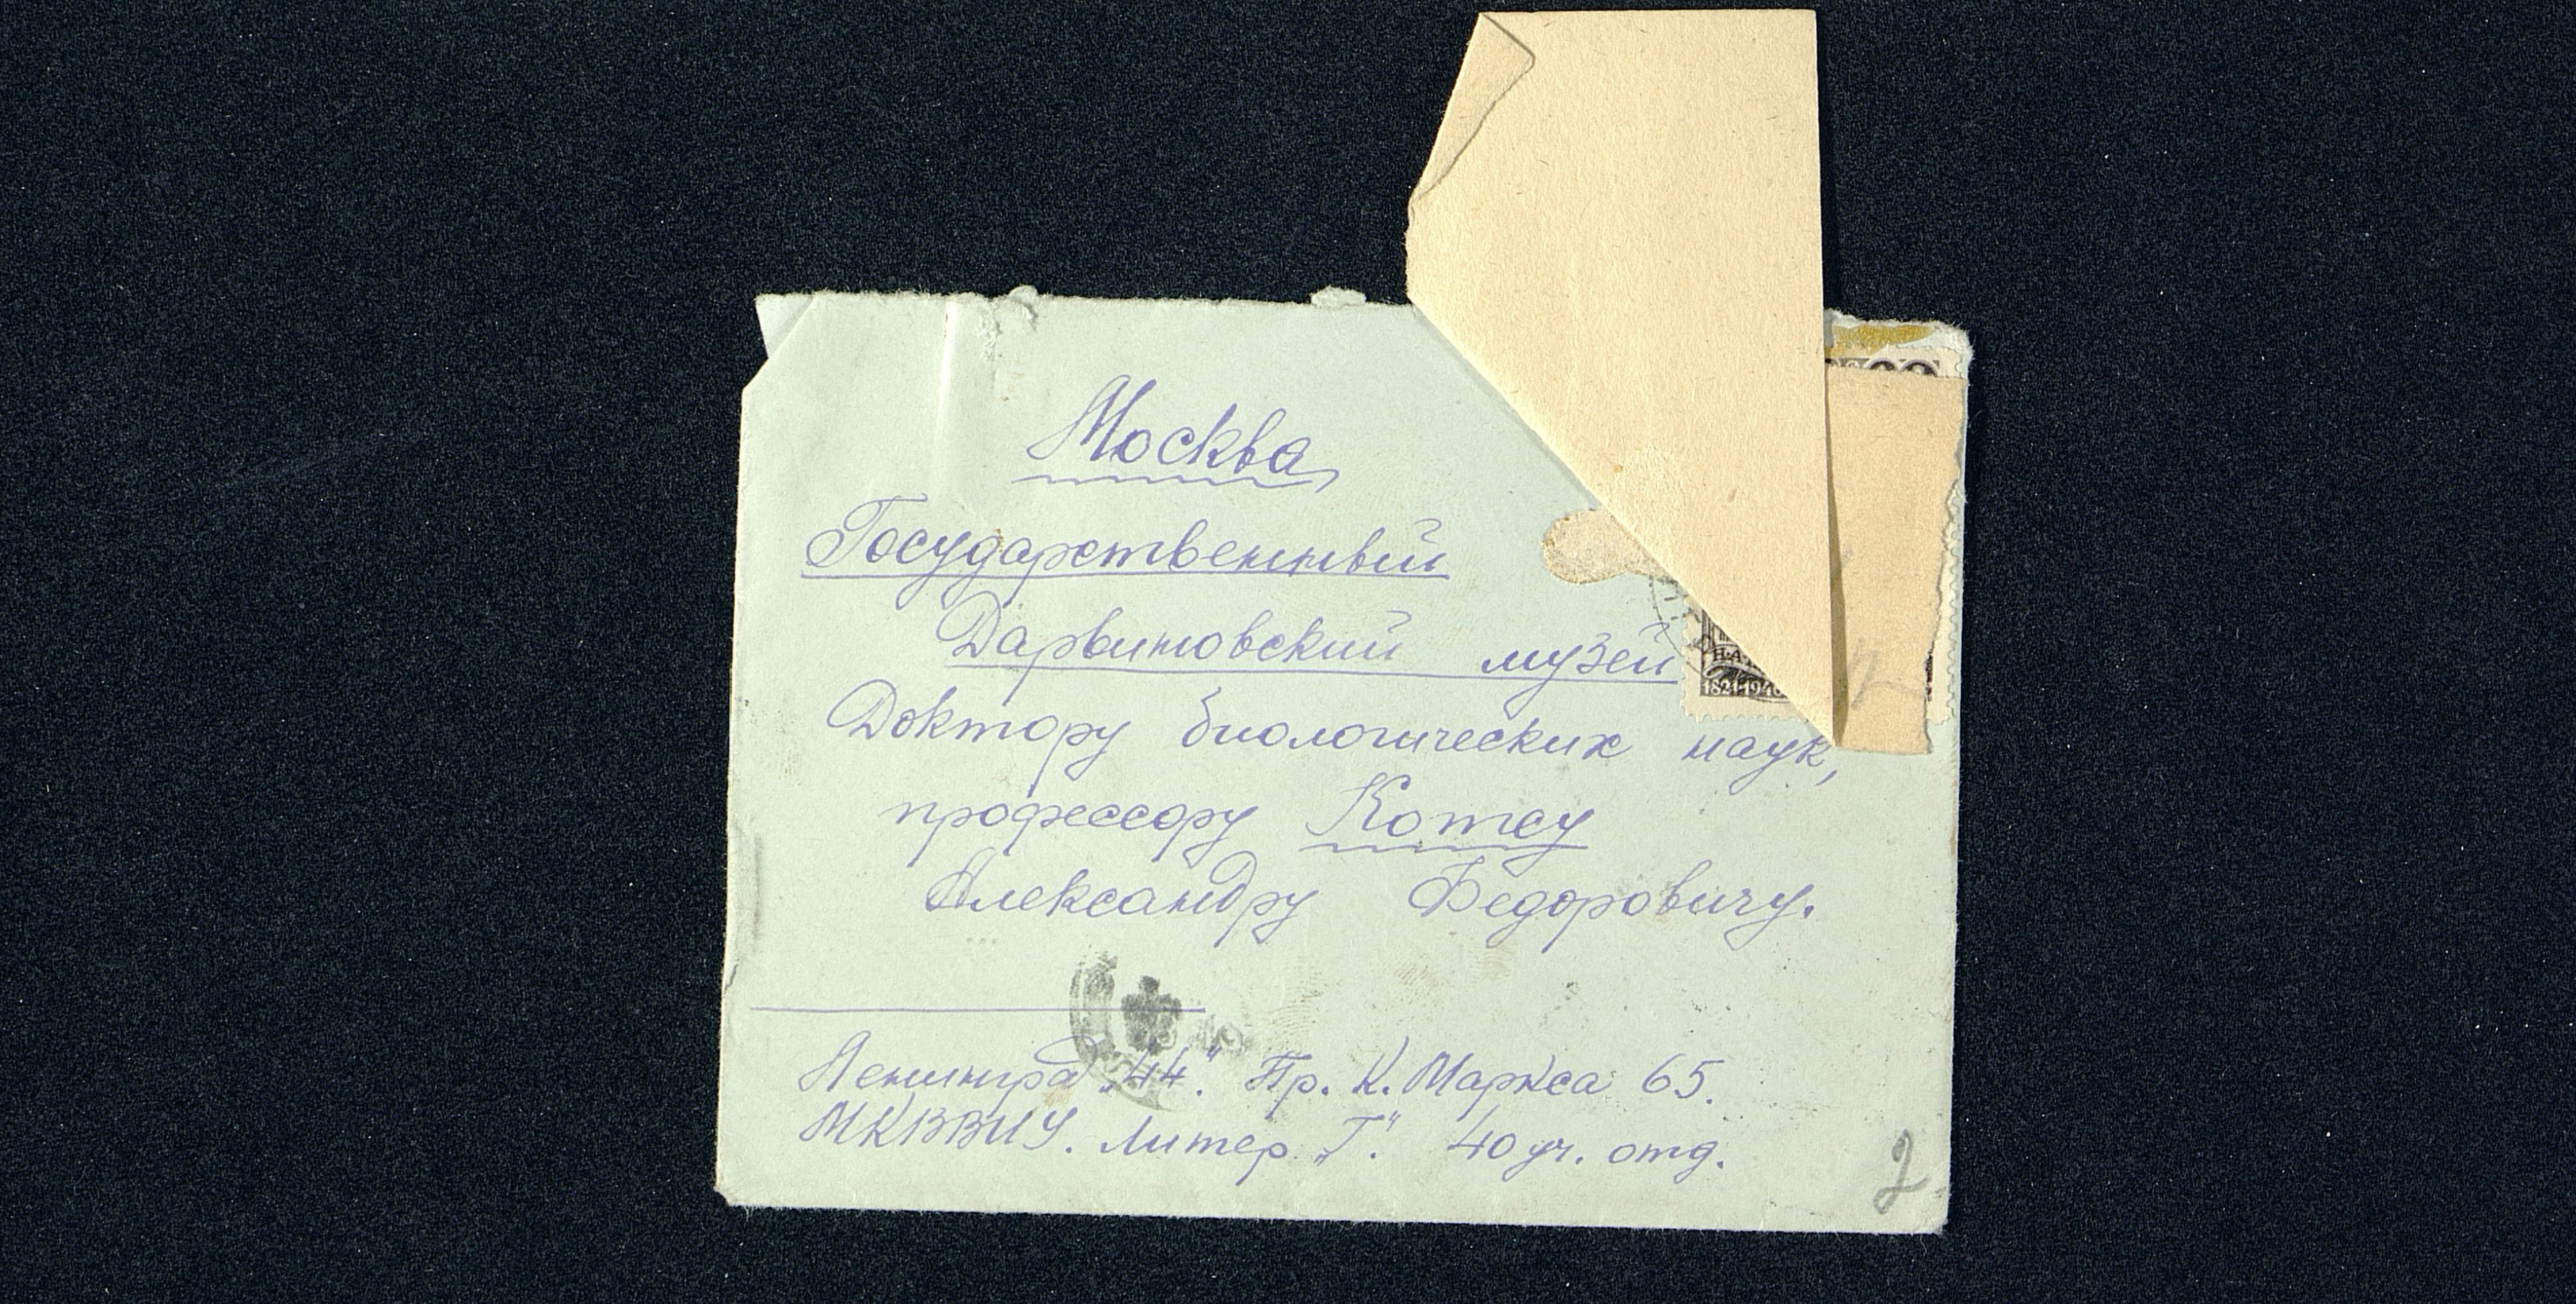 Москва
Государственный
Дарвиновский музей
Доктору биологических наук,
профессору Котсу
Александру Федоровичу.
Ленинград „44“ Пр. К. Маркса 65.
МКВВИУ. Литер „Г“. 40 уч. отд.
1821-1946
2